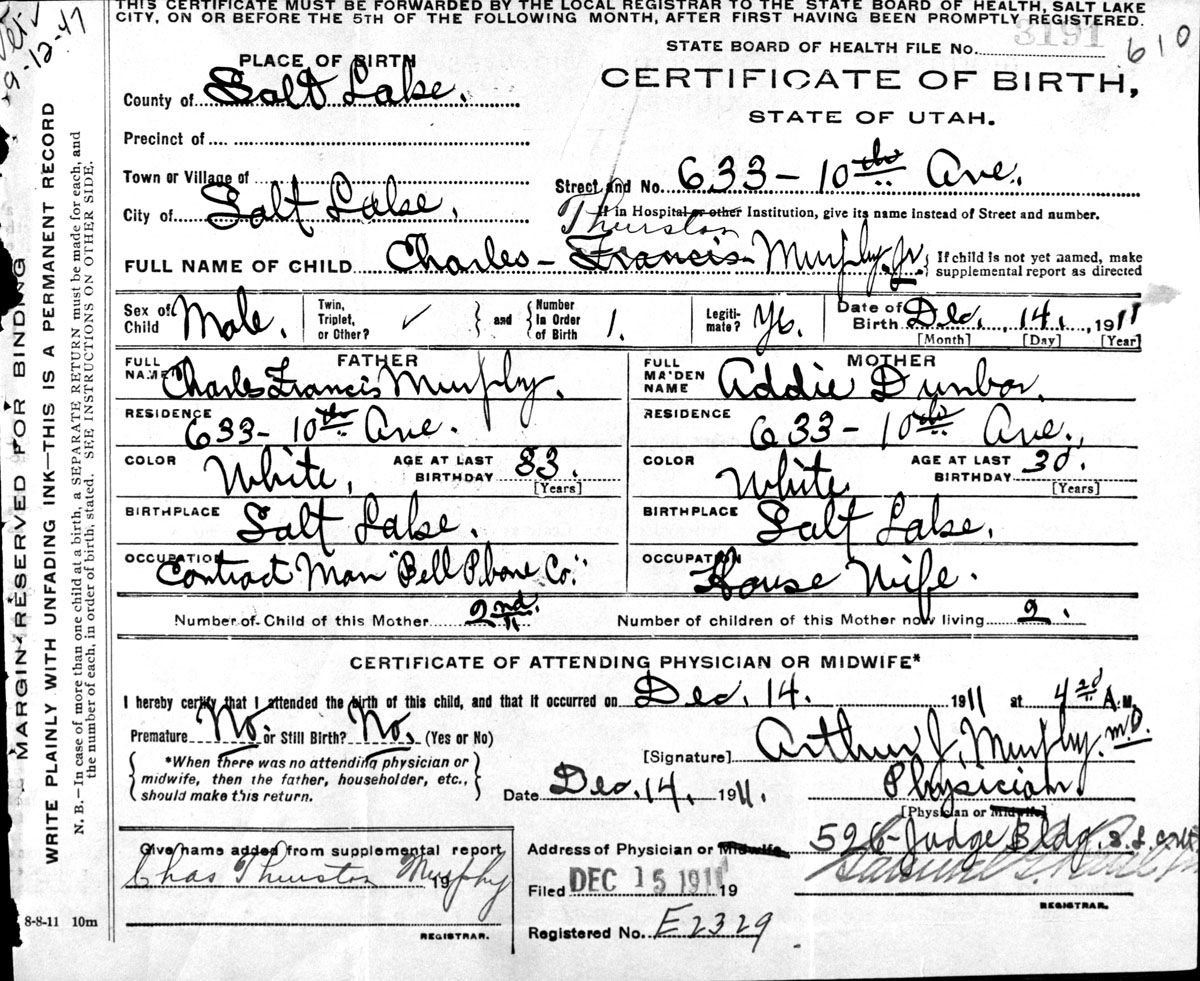 THIS CERTIFICATE MUST BE FORWARDED BY THE LOCAL REGISTRAR TO THE STATE BOARD OF HEALTH, SALT LAKE
CITY, ON OR BEFORE THE 5TH OF THE FOLLOWING MONTH, AFTER FIRST HAVING BEEN PROMPTLY REGISTERED.
9-12-47
STATE BOARD OF HEALTH FILE No. 3191 610
PLACE OF BIRTH
CERTIFICATE OF BIRTH,
County of Salt Lake.
STATE OF UTAH.
Precinct of
Town or Village of
Street and No. 633 - 10th Ave.
City of Salt Lake.
If in Hospital or other Institution, give its name instead of Street and number.
Thurston
FULL NAME OF CHILD Charles - Francis - Murphy, Jr { If child is not yet named, make
supplemental report as directed
Sex of Child Male. Twin, Triplet, or Other? ✓ } and { Number In Order of Birth 1. Legiti- mate? Date of Birth Dec. 14, 1911
[Month] [Day] [Year]
FATHER MOTHER
FULL NAME Charles Francis Murphy. FULL MAIDEN NAME Addie Dunbar
RESIDENCE 633 - 10th Ave. RESIDENCE 633 - 10th Ave.,
COLOR White. AGE AT LAST BIRTHDAY 33. [Years] COLOR White AGE AT LAST BIRTHDAY 30. [Years]
BIRTHPLACE Salt Lake. BIRTHPLACE Salt Lake.
OCCUPATION Contract Man "Bell Phone Co." OCCUPATION House Wife.
Number of Child of this Mother 2nd. Number of children of this Mother now living 2.
CERTIFICATE OF ATTENDING PHYSICIAN OR MIDWIFE*
I hereby certify that I attended the birth of this child, and that it occurred on Dec. 14. 1911 at 4 A.M.
Premature No. or Still Birth? No. (Yes or No)
[Signature] Arthur J. Murphy. M.D.
{ *When there was no attending physician or
midwife, then the father, householder, etc.,
should make this return. }
Date Dec. 14. 1911. Physician.
[Physician or Midwife]
Address of Physician or Midwife 526 - Judge Bldg.
Give name added from supplemental report
Chas Thurston Murphy 19
Filed DEC 15 1911 19
REGISTRAR.
Registered No. E2329
8-8-11 10m
REGISTRAR.
MARGIN RESERVED FOR BINDING
WRITE PLAINLY WITH UNFADING INK—THIS IS A PERMANENT RECORD
N. B.—In case of more than one child at a birth, a SEPARATE RETURN must be made for each, and
the number of each, in order of birth, stated. SEE INSTRUCTIONS ON OTHER SIDE.